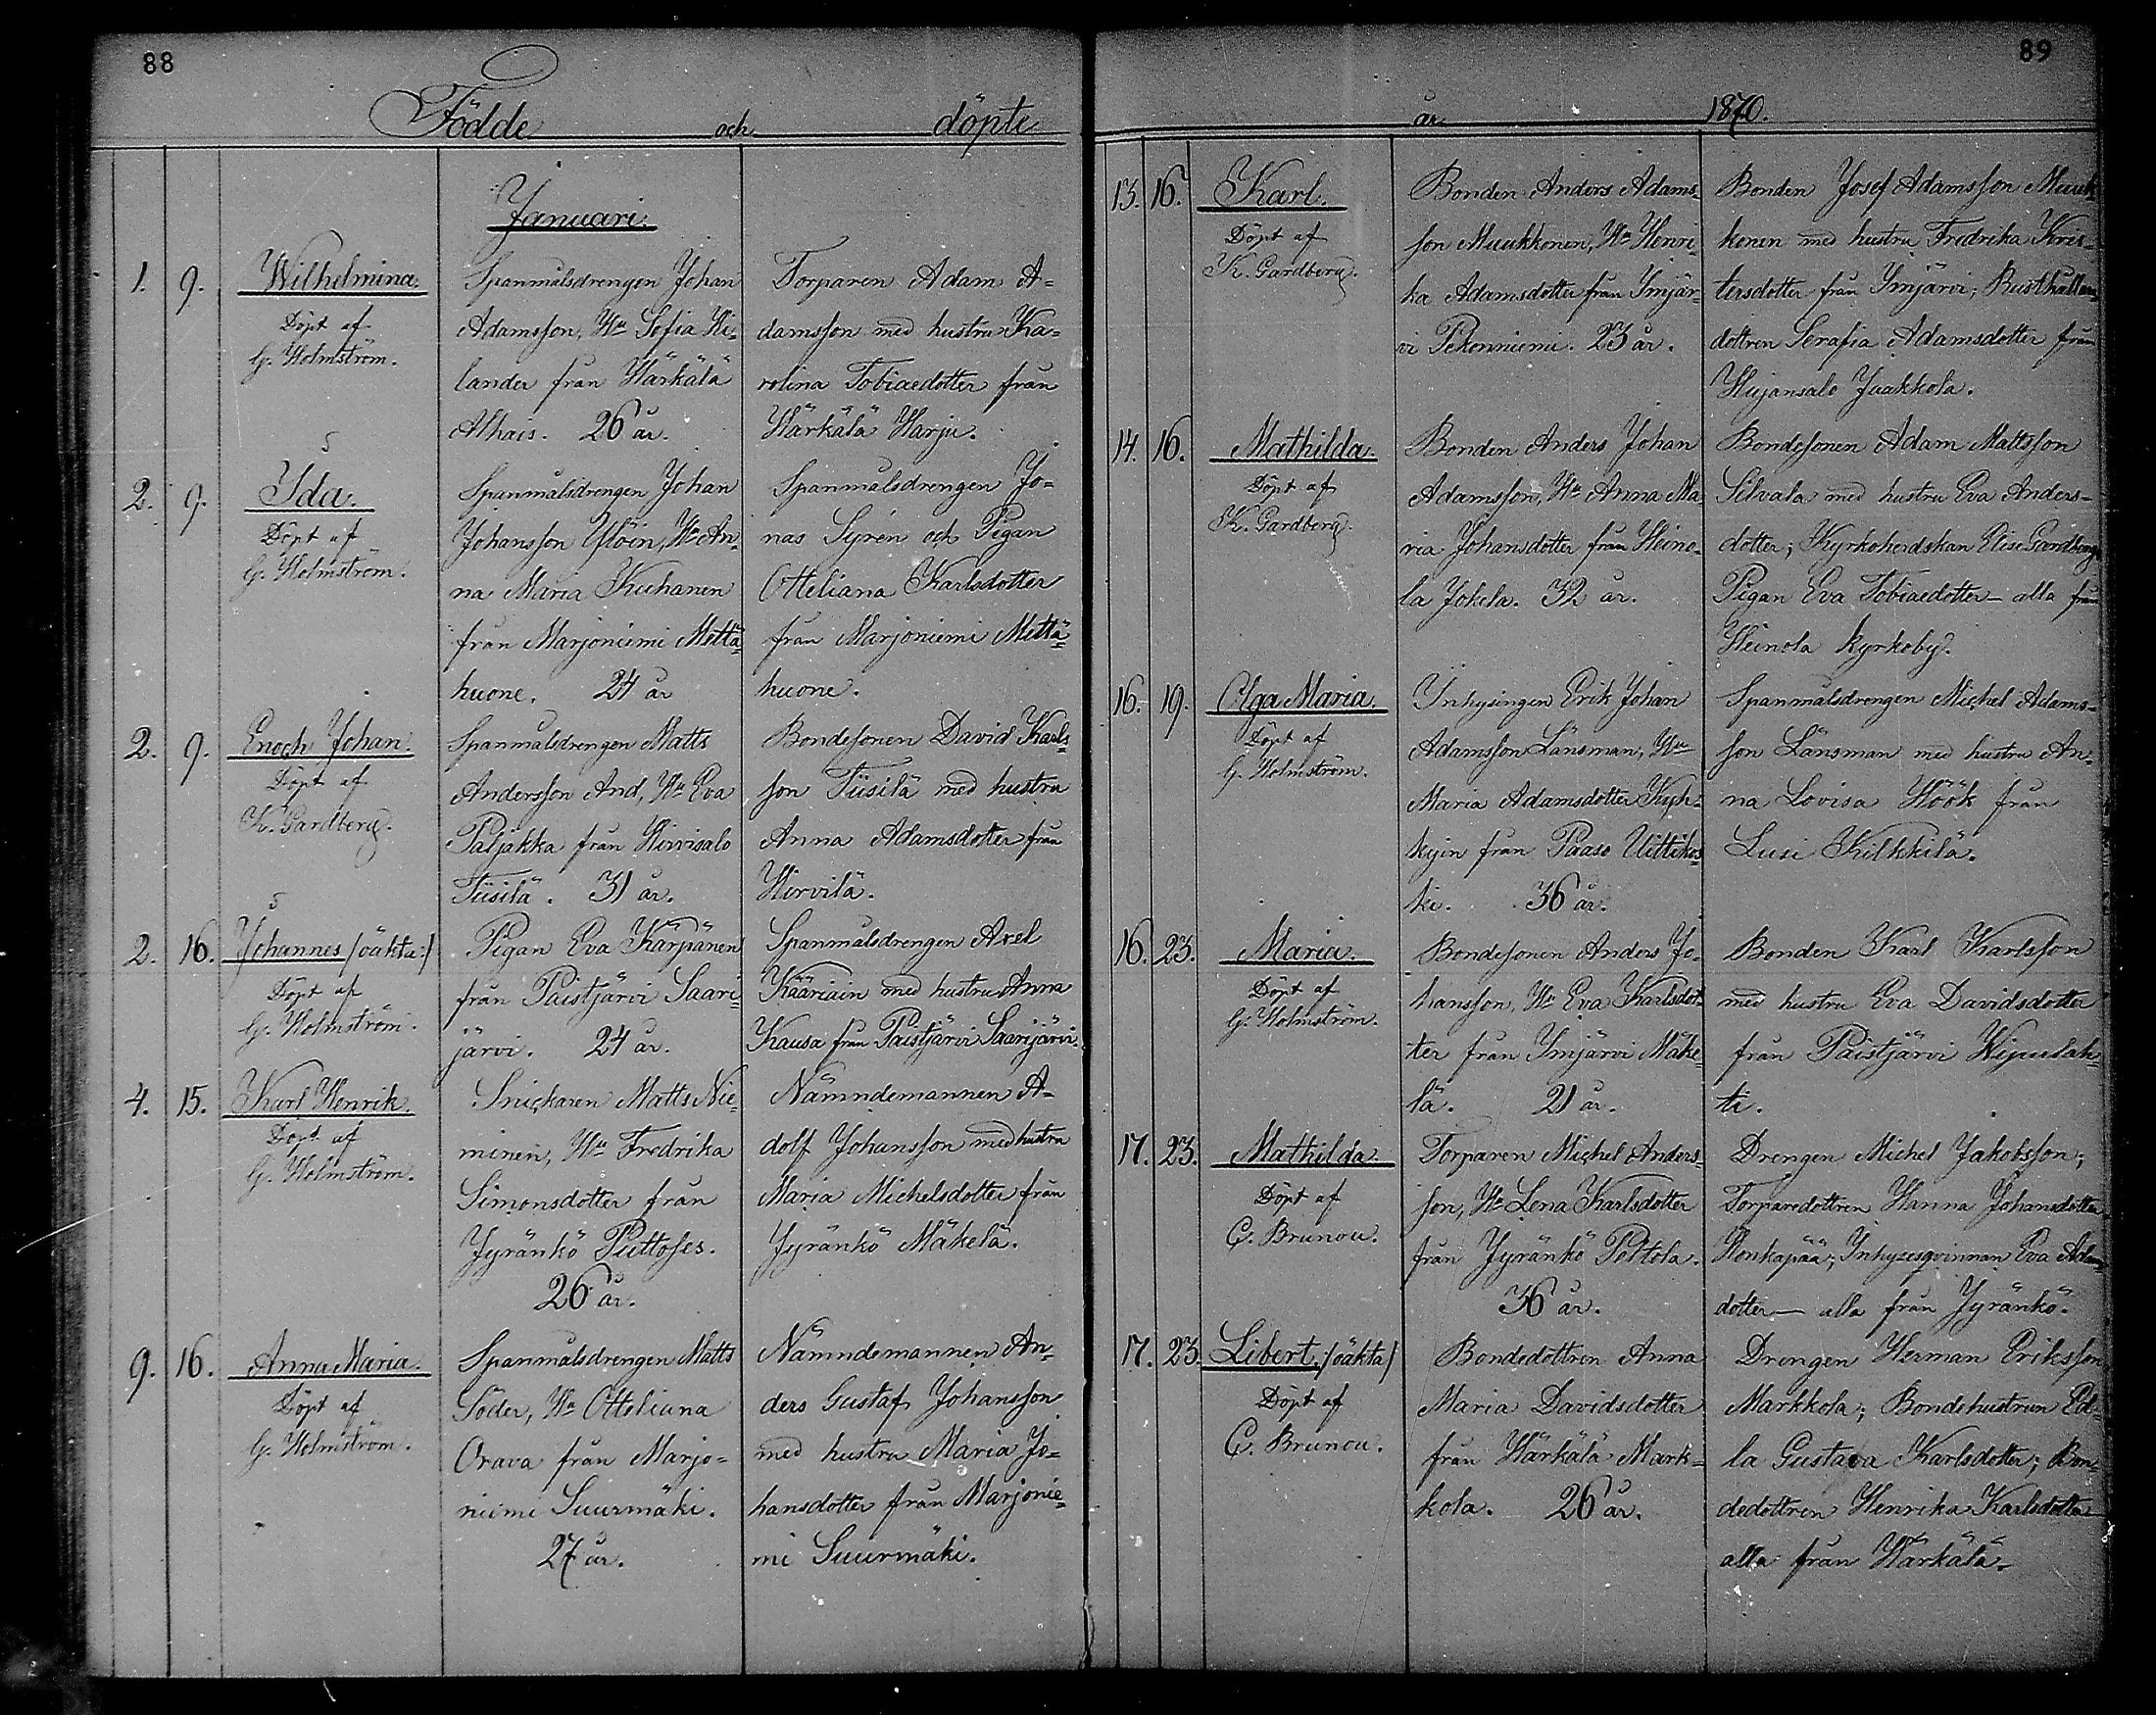 88
Födde och döpte
Januari.
1. 9. Wilhelmina.
Döpt af
G. Holmström.
Spanmålsdrengen Johan
Adamsson, Hu Sofia Hi-
lander från Härkälä
Alhais. 26 år.
Torparen Adam A-
damsson med hustru Ka-
rolina Tobiaedotter från
Härkälä Harju.
5
2. 9. Ida.
Döpt af
G. Holmström.
Spanmålsdrengen Johan
Johansson Ylöin, Hu An-
na Maria Kuhanen
från Marjoniemi Mettä-
huone. 24 år
Spanmålsdrengen Jo-
nas Syrén och Pigan
Otteliana Karlsdotter
från Marjoniemi Mettä-
huone.
2. 9. Enoch Johan.
Döpt af
K. Gardberg.
Spanmålsdrengen Matts
Andersson And, Hu Eva
Paljakka från Hirvisalo
Tiisilä. 31 år.
Bondesonen David Karls-
son Tiisilä med hustru
Anna Adamsdotter från
Hirvilä.
5
2. 16. Johannes /oäkta:/
Döpt af
G. Holmström.
Pigan Eva Kärpänen
från Paistjärvi Saari-
järvi. 24 år.
Spanmålsdrengen Axel
Kääriäin med hustru Anna
Kausa från Paistjärvi Saarijärvi.
4. 15. Karl Henrik.
Döpt af
G. Holmström.
Snickaren Matts Nie-
minen, Hu Fredrika
Simonsdotter från
Jyränkö Puttoses.
26 år.
Nämndemannen A-
dolf Johansson med hustru
Maria Michelsdotter från
Jyränkö Mäkelä.
9. 16. Anna Maria.
Döpt af
G. Holmström.
Spanmålsdrengen Matts
Söder, Hu Otteliana
Orava från Marjo-
niemi Suurmäki.
27 år.
Nämndemannen An-
ders Gustaf Johansson
med hustru Maria Jo-
hansdotter från Marjonie-
mi Suurmäki.
89
år 1870.
13. 16. Karl.
Döpt af
K. Gardberg.
Bonden Anders Adams-
son Muukkonen, Hu Henri-
ka Adamsdotter från Imjär-
vi Pekonniemi. 23 år.
Bonden Josef Adamsson Muuk-
konen med hustru Fredrika Kris-
tersdotter från Imjärvi; Rusthållare-
dottren Serafia Adamsdotter från
Hujansalo Jaakkola.
14. 16. Mathilda.
Döpt af
K. Gardberg.
Bonden Anders Johan
Adamsson, Hu Anna Ma-
ria Johansdotter från Heino-
la Jokela. 32 år.
Bondesonen Adam Mattsson
Silvala med hustru Eva Anders-
dotter; Kyrkoherdskan Elise Gardberg
Pigan Eva Tobiaedotter – alla från
Heinola kyrkoby.
16. 19. Olga Maria.
Döpt af
G. Holmström.
Inhysingen Erik Johan
Adamsson Länsman, Hu
Maria Adamsdotter Kyh-
kyin från Paaso Uittikos-
ki. 36 år.
Spanmålsdrengen Michel Adams-
son Länsman med hustru An-
na Lovisa Höök från
Lusi Kilkkilä.
16. 23. Maria.
Döpt af
G. Holmström.
Bondesonen Anders Jo-
hansson, Hu Eva Karlsdot-
ter från Imjärvi Mäke-
lä. 21 år.
Bonden Karl Karlsson
med hustru Eva Davidsdotter
från Paistjärvi Wipulah-
ti.
17. 23. Mathilda.
Döpt af
C. Brunou.
Torparen Michel Anders-
son, Hu Lena Karlsdotter
från Jyränkö Peltola.
36 år.
Drengen Michel Jakobsson;
Torparedottren Hanna Johansdotter
Honkapää; Inhysesqvinnan Eva Adams-
dotter – alla från Jyränkö.
17. 23. Libert /:oäkta/
Döpt af
C. Brunou.
Bondedottren Anna
Maria Davidsdotter
från Härkälä Mark-
kola. 26 år.
Drengen Herman Eriksson
Markkola; Bondehustrun Ed-
la Gustava Karlsdotter; Bon-
dedottren Henrika Karlsdotter
alla från Härkälä.